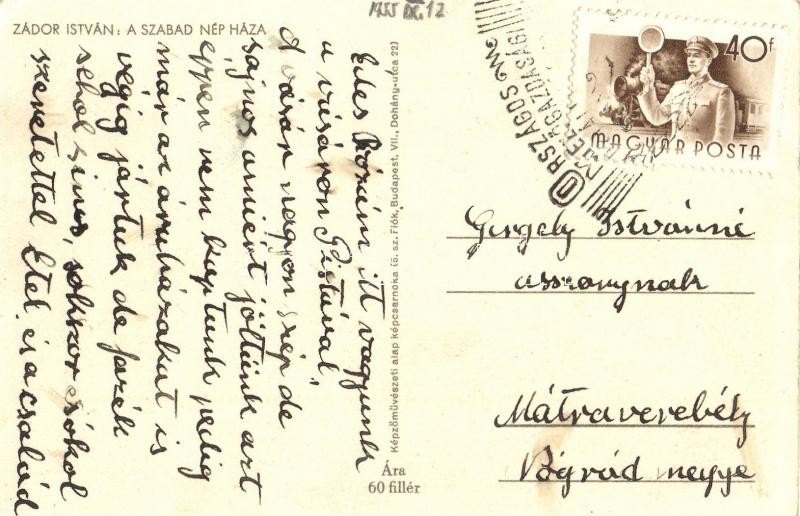 1955 IX. 12
ZÁDOR ISTVÁN: A SZABAD NÉP HÁZA
Édes Rózám itt vagyunk
a vásáron Pistával,
a vásár nagyon szép de
sajnos amiért jöttünk azt
eppen nem kaptunk pedig
már az áruházakat is
végig jártuk de fazék
sehol sincs, sokszor csókol
szeretettel Etel és a család
Képzőművészeti alap képcsarnoka (5. sz. Fiók, Budapest, VII., Dohány-utca 22)
Ára
60 fillér
ORSZÁGOS
MEZŐGAZDASÁGI
40f
MAGYAR POSTA
Gergely Istvánné
asszonynak
Mátraverebély
Nógrád megye